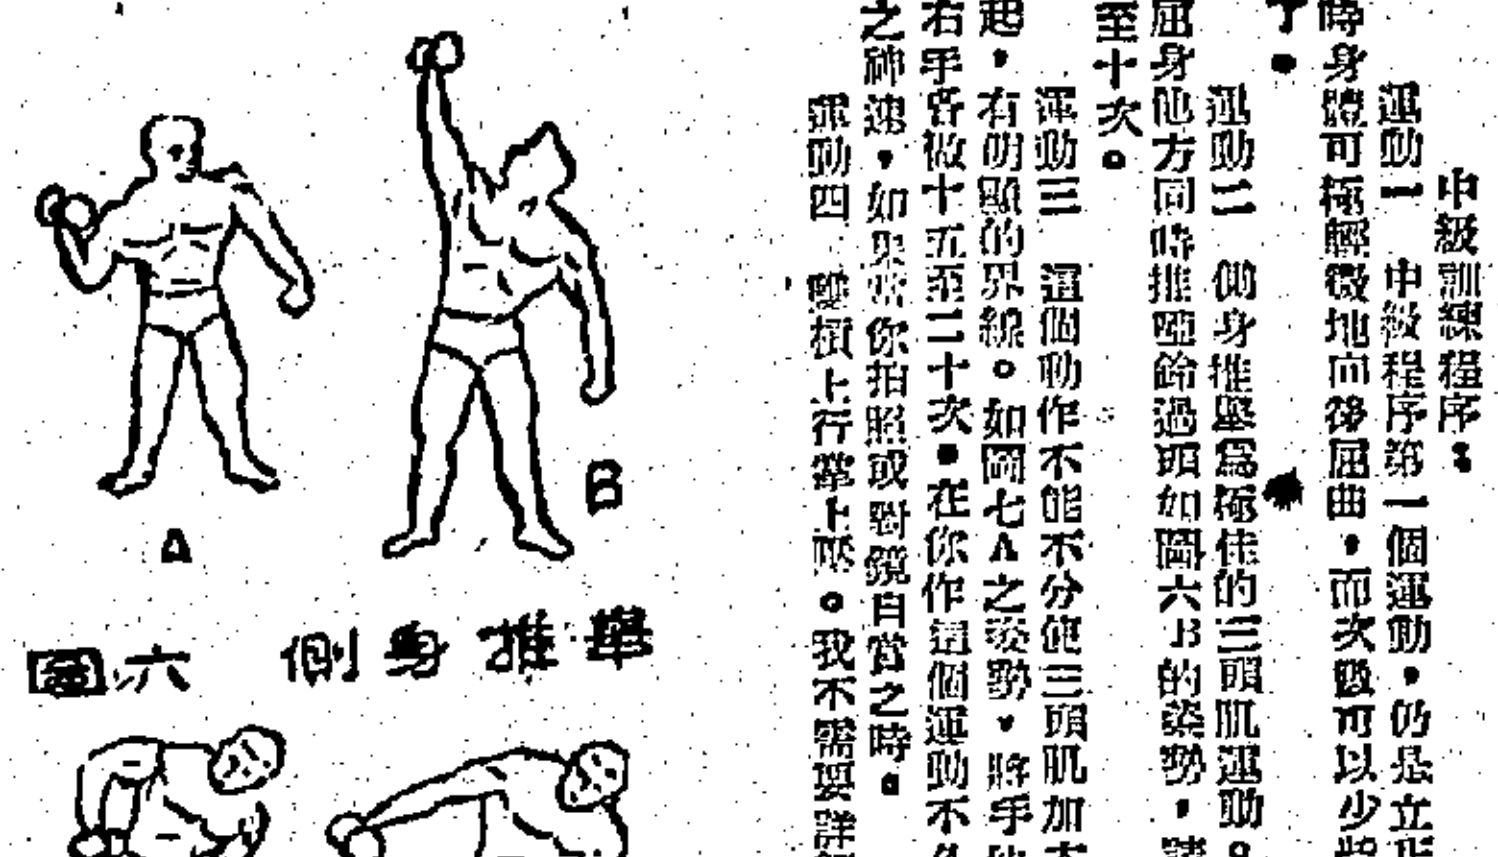 中級訓練程序：
運動一　中級程序第一個運動，仍是立正
時身體可極輕微地向後屈曲，而次數可以少些
了。
運動二　側身推壓為極佳的三頭肌運動。
屈身他方同時推啞鈴過頭如圖六B的姿勢，請
至十次。
運動三　這個動作不能不分使三頭肌加大
起，有明顯的界線。如圖七A之姿勢，將手伸
右手各做十五至二十次。在你作這個運動不久
之神速，如果當你拍照或對鏡自賞之時。
運動四　雙槓上行掌上壓。我不需要詳
A
B
圖六　側身推舉